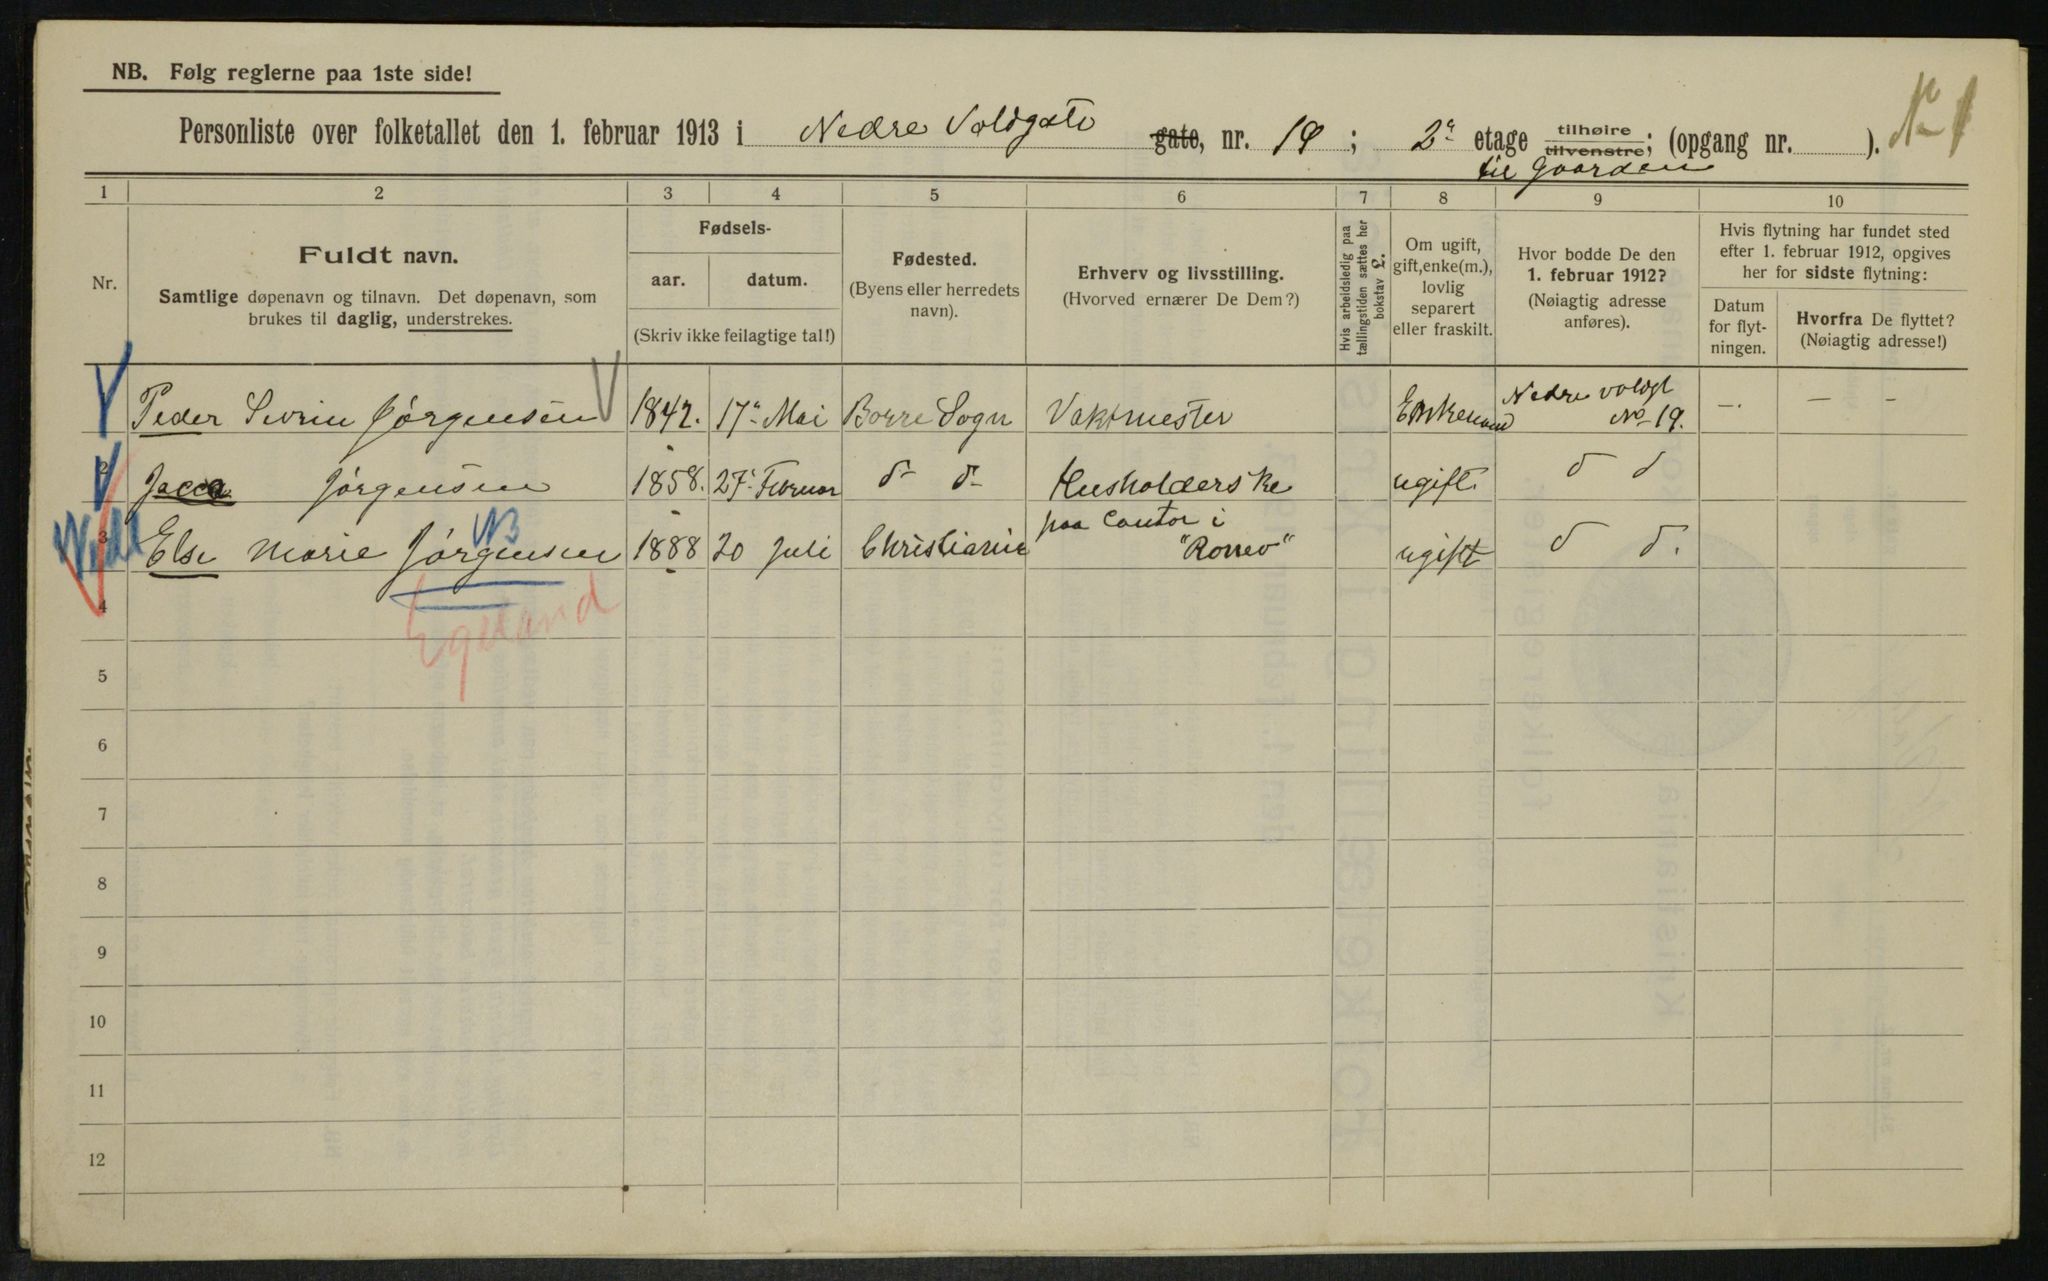 NB. Følg reglerne paa 1ste side!
No 1
Personliste over folketallet den 1. februar 1913 i Nedre Voldgate gate, nr. 19; 2a etage tilhøire tilvenstre; (opgang nr. ).
til Gaarden
1 2 3 4 5 6 7 8 9 10
Nr.
Fuldt navn.
Samtlige døpenavn og tilnavn. Det døpenavn, som
brukes til daglig, understrekes.
Fødsels-
aar. datum.
(Skriv ikke feilagtige tal!)
Fødested.
(Byens eller herredets
navn).
Erhverv og livsstilling.
(Hvorved ernærer De Dem?)
Hvis arbeidsledig paa
tællingstiden sættes her
bokstav L.
Om ugift,
gift, enke(m.),
lovlig
separert
eller fraskilt.
Hvor bodde De den
1. februar 1912?
(Nøiagtig adresse
anføres).
Hvis flytning har fundet sted
efter 1. februar 1912, opgives
her for sidste flytning:
Datum
for flyt-
ningen.
Hvorfra De flyttet?
(Nøiagtig adresse!)
Peder Sivrin Jørgensen 1842. 17de Mai Borre Sogn Vaktmester Enkemand Nedre voldgt No 19. — — —
2 Jacca Jørgensen 1858. 27. Februar d- d- Husholderske ugift. d d
3 Else Marie Jørgensen 1888 20 Juli Christiania paa Contor i "Borrev" ugift d d.
NB
4
Egeland
5
6
7
8
9
10
11
12